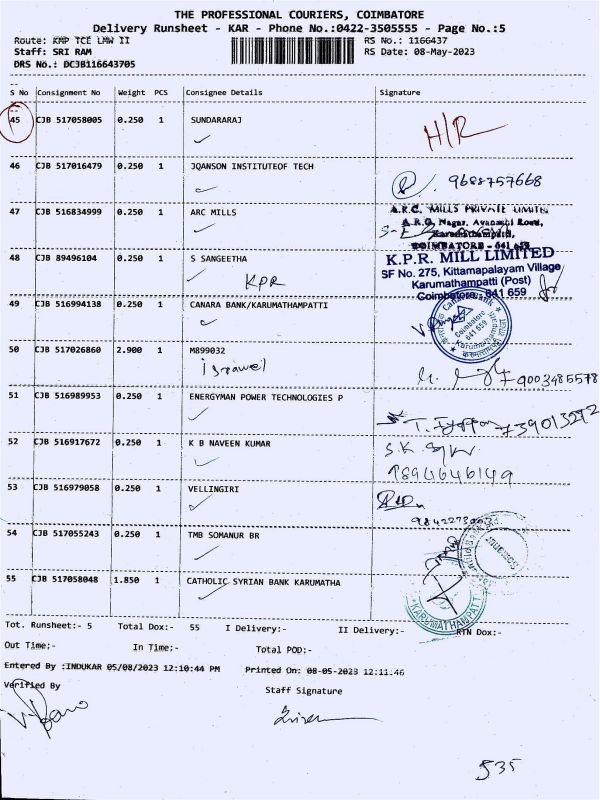 THE PROFESSIONAL COURIERS, COIMBATORE
Delivery Runsheet - KAR - Phone No.:0422-3505555 - Page No.:5
Route: KMP TCE LMW II RS No.: 1166437
Staff: SRI RAM RS Date: 08-May-2023
DRS No.: DCJB116643705
S No Consignment No Weight PCS Consignee Details Signature
45 CJB 517058005 0.250 1 SUNDARARAJ
H/R
46 CJB 517016479 0.250 1 JQANSON INSTITUTEOF TECH
9688757668
47 CJB 516834999 0.250 1 ARC MILLS
A.R.C. MILLS PRIVATE LIMITED
A.R.C. Nagar, Avanashi Road,
Karumathampatti,
COIMBATORE - 641 659
48 CJB 89496104 0.250 1 S SANGEETHA
KPR
K.P.R. MILL LIMITED
SF No. 275, Kittamapalayam Village
Karumathampatti (Post)
Coimbatore, 641 659
49 CJB 516994138 0.250 1 CANARA BANK/KARUMATHAMPATTI
Coimbatore
641 659
50 CJB 517026860 2.900 1 M899032
9003485578
51 CJB 516989953 0.250 1 ENERGYMAN POWER TECHNOLOGIES P
52 CJB 516917672 0.250 1 K B NAVEEN KUMAR
S.K.
9894646149
53 CJB 516979058 0.250 1 VELLINGIRI
54 CJB 517055243 0.250 1 TMB SOMANUR BR
55 CJB 517058048 1.850 1 CATHOLIC SYRIAN BANK KARUMATHA
KARUMATHAMPATTI
Tot. Runsheet:- 5 Total Dox:- 55 I Delivery:- II Delivery:- RTN Dox:-
Out Time:- In Time:- Total POD:-
Entered By :INDUKAR 05/08/2023 12:10:44 PM Printed On: 08-05-2023 12:11:46
Verified By Staff Signature
535